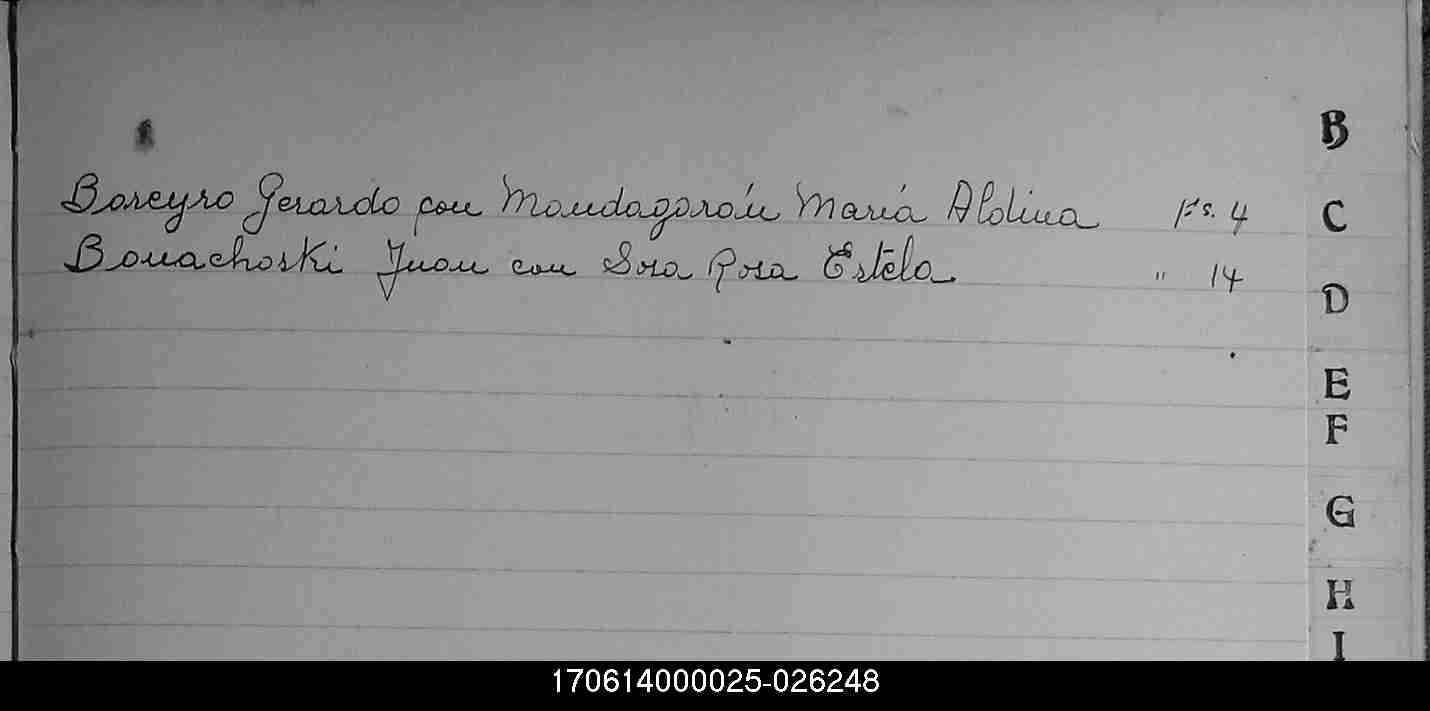 B
Boreyro Gerardo con Mondagorón María Aldina Fs. 4
C
Bonachoski Juan con Sosa Rosa Estela " 14
D
E
F
G
H
I
170614000025-026248